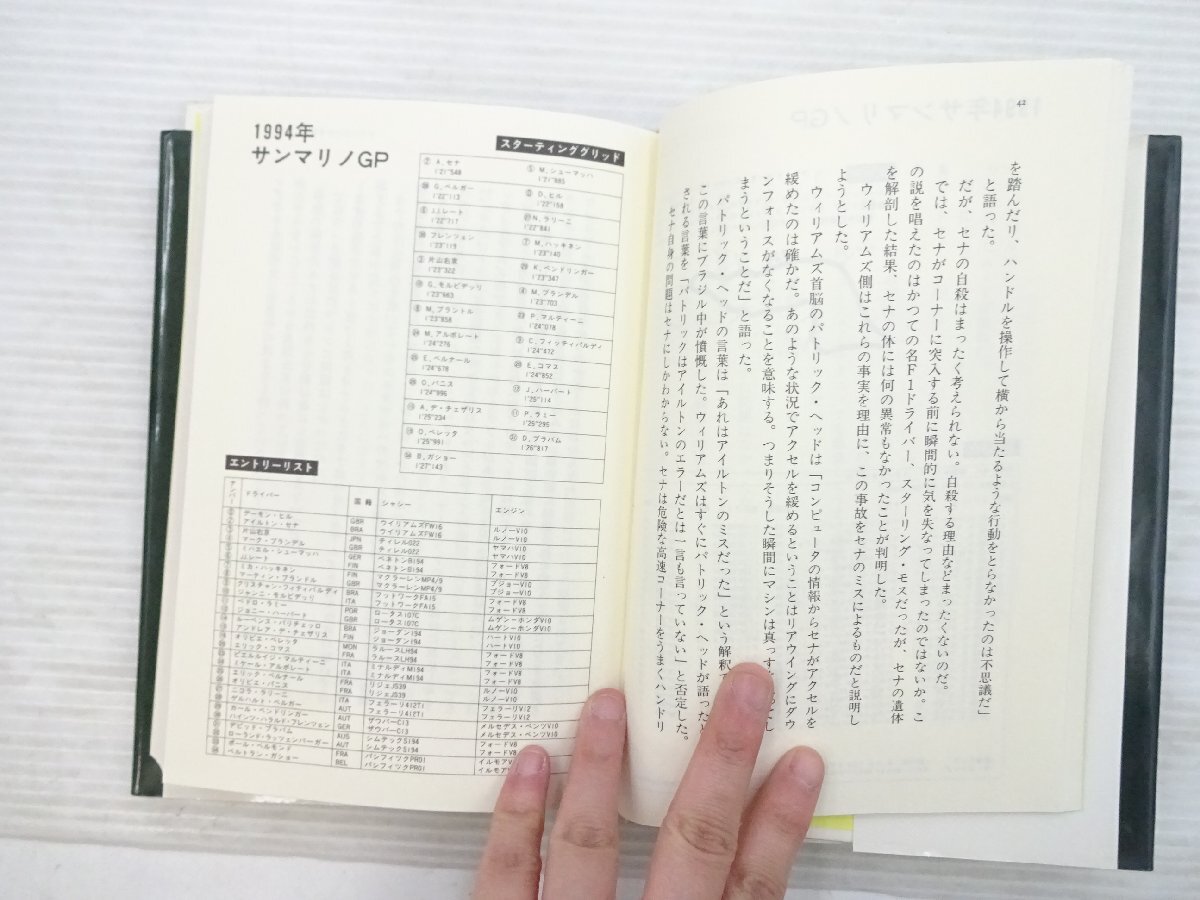 42
を踏んだリ、ハンドルを操作して横から当たるような行動をとらなかったのは不思議だ」
と語った。
だが、セナの自殺はまったく考えられない。自殺する理由などまったくないのだ。
では、セナがコーナーに突入する前に瞬間的に気を失なってしまったのではないか。こ
の説を唱えたのはかつての名F1ドライバー、スターリング・モスだったが、セナの遺体
を解剖した結果、セナの体には何の異常もなかったことが判明した。
ウィリアムズ側はこれらの事実を理由に、この事故をセナのミスによるものだと説明し
ようとした。
ウィリアムズ首脳のパトリック・ヘッドは「コンピュータの情報からセナがアクセルを
緩めたのは確かだ。あのような状況でアクセルを緩めるということはリアウイングにダウ
ンフォースがなくなることを意味する。つまりそうした瞬間にマシンは真っす
まうということだ」と語った。
パトリック・ヘッドの言葉は「あれはアイルトンのミスだった」という解釈
この言葉にブラジル中が憤慨した。ウィリアムズはすぐにパトリック・ヘッドが語ったと
される言葉を「パトリックはアイルトンのエラーだとは一言も言っていない」と否定した。
セナ自身の問題はセナにしかわからない。セナは危険な高速コーナーをうまくハンドリ
1994年
サンマリノGP
スターティンググリッド
② A.セナ 1'21"548
⑤ M.シューマッハ 1'21"885
㉘ G.ベルガー 1'22"113
⓪ D.ヒル 1'22"168
⑥ J.J.レート 1'22"717
㉗ N.ラリーニ 1'22"841
㉚ フレンツェン 1'23"119
⑦ M.ハッキネン 1'23"140
③ 片山右京 1'23"322
㉙ K.ベンドリンガー 1'23"347
⑩ G.モルビデッリ 1'23"663
④ M.ブランデル 1'23"703
⑧ M.ブラントル 1'23"858
㉓ P.マルティーニ 1'24"078
㉔ M.アルボレート 1'24"276
⑨ C.フィッティパルディ 1'24"472
㉕ E.ベルナール 1'24"678
⑳ E.コマス 1'24"852
㉖ O.パニス 1'24"996
⑫ J.ハーバート 1'25"114
⑮ A.デ・チェザリス 1'25"234
⑪ P.ラミー 1'25"295
⑲ O.ベレッタ 1'25"991
㉛ D.ブラバム 1'26"817
㉞ B.ガショー 1'27"143
エントリーリスト
ナンバー ドライバー 国籍 シャシー エンジン
デーモン・ヒル GBR ウイリアムズFW16 ルノーV10
アイルトン・セナ BRA ウイリアムズFW16 ルノーV10
片山右京 JPN ティレル022 ヤマハV10
マーク・ブランデル GBR ティレル022 ヤマハV10
ミハエル・シューマッハ GER ベネトンB194 フォードV8
J.J.レート FIN ベネトンB194 フォードV8
ミカ・ハッキネン FIN マクラーレンMP4/9 プジョーV10
マーティン・ブランドル GBR マクラーレンMP4/9 プジョーV10
クリスチャン・フィティパルディ BRA フットワークFA15 フォードV8
ジャンニ・モルビデッリ ITA フットワークFA15 フォードV8
ペドロ・ラミー POR ロータス107C ムゲンーホンダV10
ジョニー・ハーバート GBR ロータス107C ムゲンーホンダV10
ルーベンス・バリチェッロ BRA ジョーダン194 ハートV10
アンドレア・デ・チェザリス ジョーダン194 ハートV10
オリビエ・ベレッタ MON ラルースLH94 フォードV8
エリック・コマス FRA ラルースLH94 フォードV8
ピエルルイジ・マルティーニ ITA ミナルディM194 フォードV8
ミケール・アルボレート ITA ミナルディM194 フォードV8
エリック・ベルナール FRA リジェJS39 ルノーV10
オリビエ・パニス FRA リジェJS39 ルノーV10
ニコラ・ラリーニ ITA フェラーリ412T1 フェラーリV12
ゲルハルト・ベルガー AUT フェラーリ412T1 フェラーリV12
カール・ベンドリンガー AUT ザウバーC13 メルセデス・ベンツV10
ハインツ・ハラルド・フレンツェン GER ザウバーC13 メルセデス・ベンツV10
デビッド・ブラバム AUS シムテックS194 フォードV8
ローランド・ラツェンバーガー AUT シムテックS194 フォードV8
ポール・ベルモンド FRA パシフィックPR01 イルモアV10
ベルトラン・ガショー BEL パシフィックPR01 イルモア